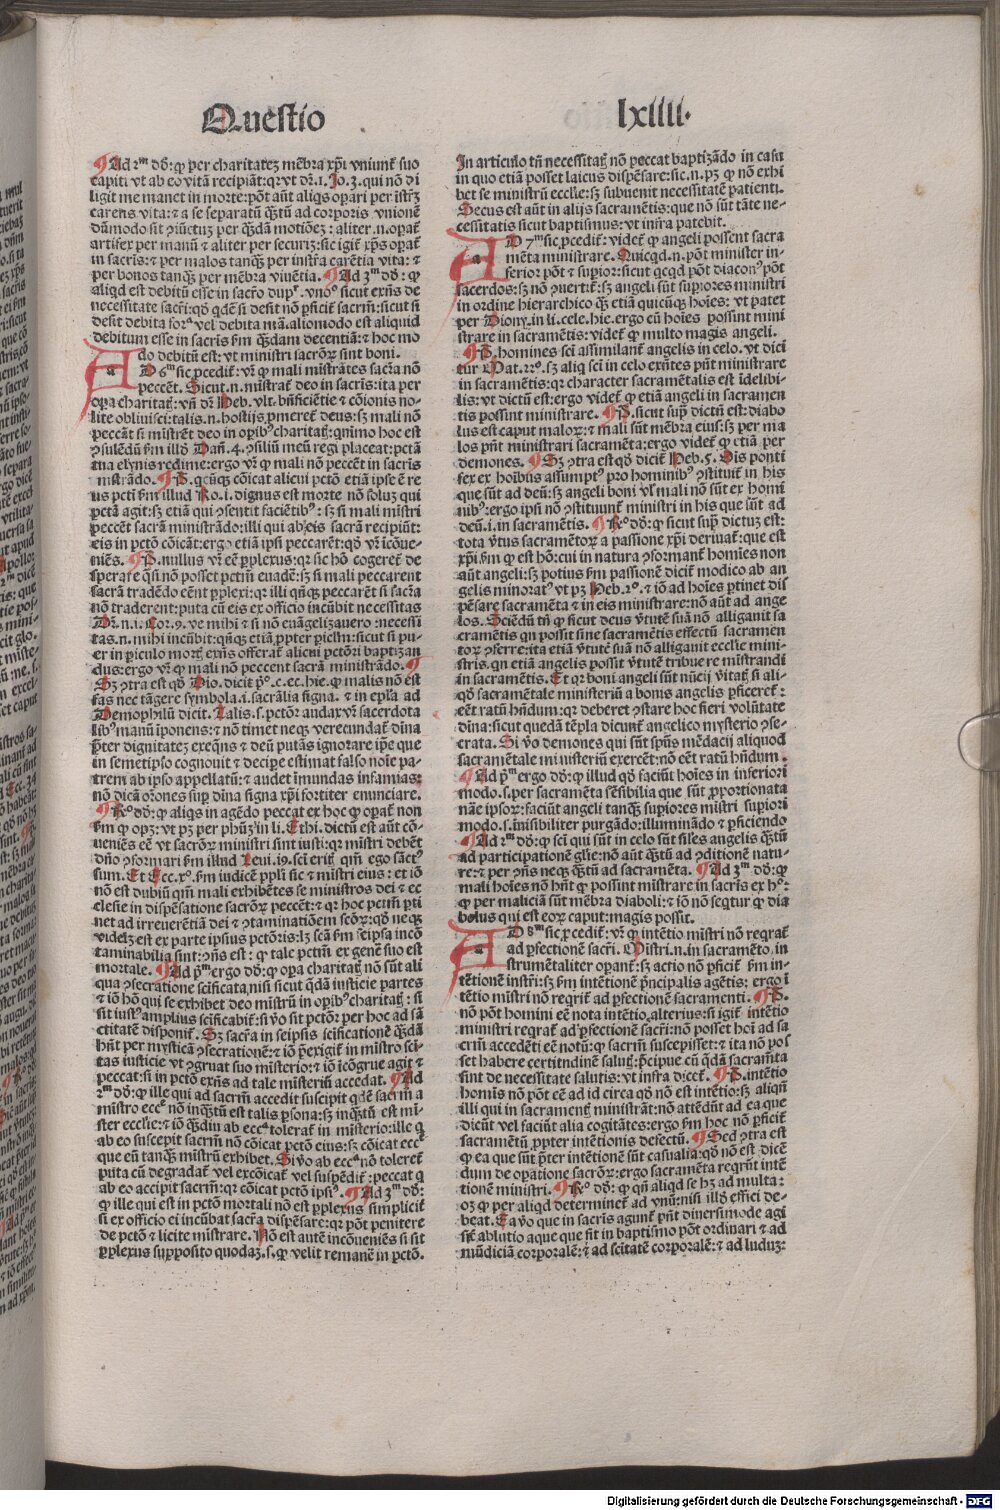 Questio
lxiiii.
¶Ad 2m dō: ꝙ per charitatez mēbra xp̄i vniunt̄ suo
capiti vt ab eo vitā recipiāt: qꝛ vt dr̄.1. Jo.3. qui nō di
ligit me manet in morte: pōt aūt aliqs opari per īstrꝫ
carens vita: ⁊ a se separatū q̄ꝫtū ad corporis vnionē
artifex per manū ⁊ aliter per securiꝫ: sic igit̄ xp̄s opat̄
in sacris: ⁊ per malos tanq̄ꝫ per instra carētia vita: ⁊
per bonos tanq̄ꝫ per mēbra viuētia. ¶Ad 3m dō: ꝙ
necessitate sacri: qō qdē si desit nō ꝑficit̄ sacrm: sicut si
desit debita forᵃ vel debita mā. aliomodo est aliquid
debitum esse in sacris ẜm quādam decentiā: ⁊ hoc mo
do debitū est: vt ministri sacroꝝ sint boni.
AD 6m sic ꝓcedit̄: vr̄ ꝙ mali ministrātes sacra nō
peccēt. Sicut.n. ministrat̄ deo in sacris: ita per
opa charitat꜄: vn̄ dr̄ Heb. vlt. bn̄ficiētie ⁊ cōionis no-
lite obliuisci: talis.n. hostijs ꝓmeret̄ deus: sꝫ mali nō
peccāt si mīstrēt deo in opibꝰ charitat꜄: qnimo hoc est
ꝯsulēdū ẜm illd̄ Dan̄.4. ꝯsiliū meū regi placeat: pctā
tua elynis redime: ergo vr̄ ꝙ mali nō peccēt in sacris
mīstrādo. ¶P. qcūqꝫ cōicat alicui pctō etiā ipse ē re
us pcti ẜm illud Ro.i. dignus est morte nō soluꝫ qui
pctā agit: sꝫ etiā qui ꝯsentit faciētibꝰ: sꝫ si mali mīstri
peccēt sacrā ministrādo: illi qui ab eis sacrā recipiūt:
eis in pctō cōicāt: ergo etiā ipsi peccarēt: qō vr̄ icōue-
niēs. ¶P. nullus vr̄ eē ꝑplexus: qꝛ sic hō cogeret̄ de
sperare q̄si nō posset pctm euadē: sꝫ si mali peccarent
sacrā tradēdo eēnt ꝑplexi: qꝛ illi qn̄qꝫ peccarēt si sacra
nō traderent: puta cū eis ex officio incūbit necessitas
Dr̄.n.i. Cor.9. ve mihi ⁊ si nō euāgelizauero: necessi
tas.n. mihi incūbit: qn̄qꝫ etiā ꝓpter piclm̄: sicut si pu-
er in piculo mort꜄ exn̄s offerat̄ alicui pctōri baptizan
dus: ergo vr̄ ꝙ mali nō peccent sacrā ministrādo. ¶
Sꝫ ꝯtra est qō Dio. dicit pᵒ.c.ec.hie. ꝙ malis nō est
fas nec tāgere symbola.i. sacrālia signa. ⁊ in epl̄a ad
Demophilū dicit. Talis.s. pctōr audax vr̄ sacerdota
libꝰ manū iponens: ⁊ nō timet neqꝫ verecundat̄ diīna
p̄ter dignitateꝫ exeqn̄s ⁊ deū putās ignorare ip̄e que
in semetipso cognouit ⁊ decipe estimat falso noīe pa-
trem ab ipso appellatū: ⁊ audet īmundas infamias:
nō dicā orōnes sup dīna signa xp̄i fortiter enunciare.
¶Rᵒ dō: ꝙ aliqs in agēdo peccat ex hoc ꝙ opat̄ non
ẜm ꝙ opꝫ: vt pꝫ per phūꝫ in li. Ethi. dictū est aūt cō-
ueniēs eē vt sacroꝝ ministri sint iusti: qꝛ mīstri debēt
dn̄o ꝯformari ẜm illud Leui.19. sci erit꜄ qm̄ ego sāctꝰ
sum. Et Ecc.xᵒ. ẜm iudicē ppl̄i sic ⁊ mīstri eius: et iō
nō est dubiū qn̄ mali exhibētes se ministros dei ⁊ ec
clesie in dispēsatione sacroꝝ peccēt: ⁊ qꝛ hoc pctm̄ pti
net ad irreuerētiā dei ⁊ ꝯtaminatiōem scōꝝ: qō neqꝫ
videlꝫ est ex parte ipsius pctōris: lꝫ scā ẜm seipsa incō
taminabilia sint: ꝯn̄s est: ꝙ tale pctm̄ ex genē suo est
mortale. ¶Ad pm ergo dō: ꝙ opa charitat꜄ nō sūt ali
qua ꝯsecratione scificata, nisi sicut qdā iusticie partes
⁊ iō hō qui se exhibet deo mīstrū in opibꝰ charitat꜄: si
sit iustꝰ amplius scificabit̄: si vō sit pctōr: per hoc ad sā
ctitatē disponit̄. Sꝫ sacra in seipsis scificationē quādā
hn̄t per mysticā ꝯsecrationē: ⁊ iō p̄exigit̄ in mīstro sci-
tas iusticie vt ꝯgruat suo misterio: ⁊ iō icōgrue agit ⁊
peccat: si in pctō exn̄s ad tale misteriū accedat. ¶Ad
2m dō: ꝙ ille qui ad sacrm accedit suscipit qdē sacrm a
mīstro eccᵉ nō inq̄ꝫtū est talis ꝑsona: sꝫ inq̄ꝫtū est mi-
ster ecclie: ⁊ iō q̄ꝫdiu ab eccᵃ tolerat̄ in misterio: ille ꝙ
ab eo suscepit sacrm nō cōicat pctō eius: sꝫ cōicat eccᵉ
que eū tanq̄ꝫ mīstrū exhibet. Si vō ab eccᵃ nō toleret̄
puta cū degradat̄ vel excōicat̄ vel suspēdit̄: peccat q
ab eo accipit sacrm: qꝛ cōicat pctō ipsiꝰ. ¶Ad 3m dō:
ꝙ ille qui est in pctō mortali nō est ꝑplexus simplicit̄
si ex officio ei incūbat sacrā dispēsare: qꝛ pōt penitere
de pctō ⁊ licite mīstrare. Nō est autē incōueniēs si sit
ꝑplexus supposito quodaꝫ.s. ꝙ velit remanē in pctō.
In articulo tn̄ necessitat꜄ nō peccat baptizādo in casu
in quo etiā posset laicus dispēsare: sic.n. pꝫ ꝙ nō exhi
bet se ministrū ecclie: sꝫ subuenit necessitatē patienti.
Secus est aūt in alijs sacramētis: que nō sūt tāte ne-
cessitatis sicut baptismus: vt infra patebit.
AD 7m sic ꝓcedit̄: videt̄ ꝙ angeli possent sacra
mēta ministrare. Quicqd.n. pōt minister in-
ferior pōt ⁊ supior: sicut qcqd pōt diaconꝰ pōt
sacerdos: sꝫ nō ꝯuertit̄: sꝫ angeli sūt supiores ministri
in ordine hierarchico q̄ꝫ etiā quicūqꝫ hoīes: vt patet
per Diony. in li. cele. hie. ergo cū hoīes possunt mini
strare in sacramētis: videt̄ ꝙ multo magis angeli.
¶P. homines sci assimilant̄ angelis in celo. vt dici
tur Mat.22ᵒ. sꝫ aliq sci in celo exn̄tes pn̄t ministrare
in sacramētis: qꝛ character sacramētalis est īdelibi-
lis: vt dictū est: ergo videt̄ ꝙ etiā angeli in sacramen
tis possunt ministrare. ¶P. sicut sup̄ dictū est: diabo
lus est caput maloꝝ: ⁊ mali sūt mēbra eius: sꝫ per ma
los pn̄t ministrari sacramēta: ergo videt̄ ꝙ etiā per
demones. ¶Sꝫ ꝯtra est qō dicit̄ Heb.5. Ois ponti
fex ex hoībus assumptꝰ pro hominibꝰ ꝯstituit̄ in his
que sūt ad deū: sꝫ angeli boni vl̄ mali nō sūt ex homi
nibꝰ: ergo ipsi nō ꝯstituunt̄ ministri in his que sūt ad
deū.i. in sacramētis. ¶Rᵒ dō: ꝙ sicut sup̄ dictuꝫ est:
tota v̄tus sacramētoꝝ a passione xp̄i deriuat̄: que est
xp̄i ẜm ꝙ est hō: cui in natura ꝯformant̄ homies non
aūt angeli: sꝫ potius ẜm passionē dicit̄ modico ab an
gelis minoratꝰ vt pꝫ Heb.2ᵒ. ⁊ iō ad hoīes ptinet dis
pēsare sacramēta ⁊ in eis ministrare: nō aūt ad ange
los. Sciēdū tn̄ ꝙ sicut deus v̄tutē suā nō alligauit sa
cramētis qn possit sine sacramētis effectū sacramen
toꝝ ꝯferre: ita etiā v̄tutē suā nō alligauit ecclie mini-
stris. qn etiā angelis possit v̄tutē tribuere mīstrandi
in sacramētis. Et qꝛ boni angeli sūt nūcij v̄itat꜄ si ali-
qō sacramētale ministeriū a bonis angelis ꝑficeret̄:
eēt ratū hn̄dum: qꝛ deberet ꝯstare hoc fieri volūtate
diīna: sicut quedā tēpla dicunt̄ angelico mysterio ꝯse-
crata. Si vō demones qui sūt spūs mēdacij aliquod
sacramētale miniisteriū exercēt: nō eēt ratū hn̄dum.
¶Ad pm ergo dō: ꝙ illud qō faciūt hoīes in inferiori
modo.s. per sacramēta sēsibilia que sūt ꝓportionata
nāe ipsoꝝ: faciūt angeli tanq̄ꝫ supiores mīstri supiori
modo.s. inuisibiliter purgādo: illuminādo ⁊ ꝑficiendo
¶Ad 2m dō: ꝙ sci qui sūt in celo sūt siles angelis q̄ꝫtū
ad participationē gl̄ie: nō aūt q̄ꝫtū ad ꝯditionē natu-
re: ⁊ per ꝯn̄s neqꝫ q̄ꝫtū ad sacramēta. ¶Ad 3m dō: ꝙ
mali hoīes nō hn̄t ꝙ possint mīstrare in sacris ex hᵒ:
ꝙ per maliciā sūt mēbra diaboli: ⁊ iō nō seqtur ꝙ dia
bolus qui est eoꝝ caput: magis possit.
AD 8m sic ꝓcedit̄: vr̄ ꝙ intētio mīstri nō reqrat̄
ad ꝑfectionē sacri. Mīstri.n. in sacramēto, in
strumētaliter opant̄: sꝫ actio nō ꝑficit̄ ẜm in-
tētionē instri: sꝫ ẜm intētionē p̄ncipalis agētis: ergo ī
tētio mīstri nō reqrit̄ ad ꝑfectionē sacramenti. ¶P.
nō pōt homini eē nota intētio alterius: si igit̄ intētio
ministri reqrat̄ ad ꝑfectionē sacri: nō posset hoī ad sa
crm̄ accedēti eē notū: ꝙ sacrm̄ suscepisset: ⁊ ita nō pos
set habere certitudinē salut꜄: p̄cipue cū qdā sacramta
sint de necessitate salutis: vt infra dicet̄. ¶P. intētio
homis nō pōt eē ad id circa qō nō est intētio: sꝫ aliqn̄
illi qui in sacramentꝭ ministrāt: nō attēdūt ad ea que
dicūt vel faciūt alia cogitātes: ergo ẜm hoc nō ꝑficit̄
sacramētū ꝓpter intētionis defectū. ¶Sed ꝯtra est
ꝙ ea que sūt p̄ter intētionē sūt casualia: qō nō est dicē
dum de opatione sacroꝝ: ergo sacramēta reqrūt intē
tionē ministri. ¶Rᵒ dō: ꝙ qn̄ aliqd se hꝫ ad multa:
oꝫ ꝙ per aliqd determinet̄ ad vnū: nisi illd̄ effici de-
beat. Ea vō que in sacris agunt̄ pn̄t diuersimode agi
sic̄ ablutio aque que fit in baptismo pōt ordinari ⁊ ad
mūdiciā corporalē: ⁊ ad scitatē corporalē: ⁊ ad luduꝫ:
Digitalisierung gefördert durch die Deutsche Forschungsgemeinschaft - DFG